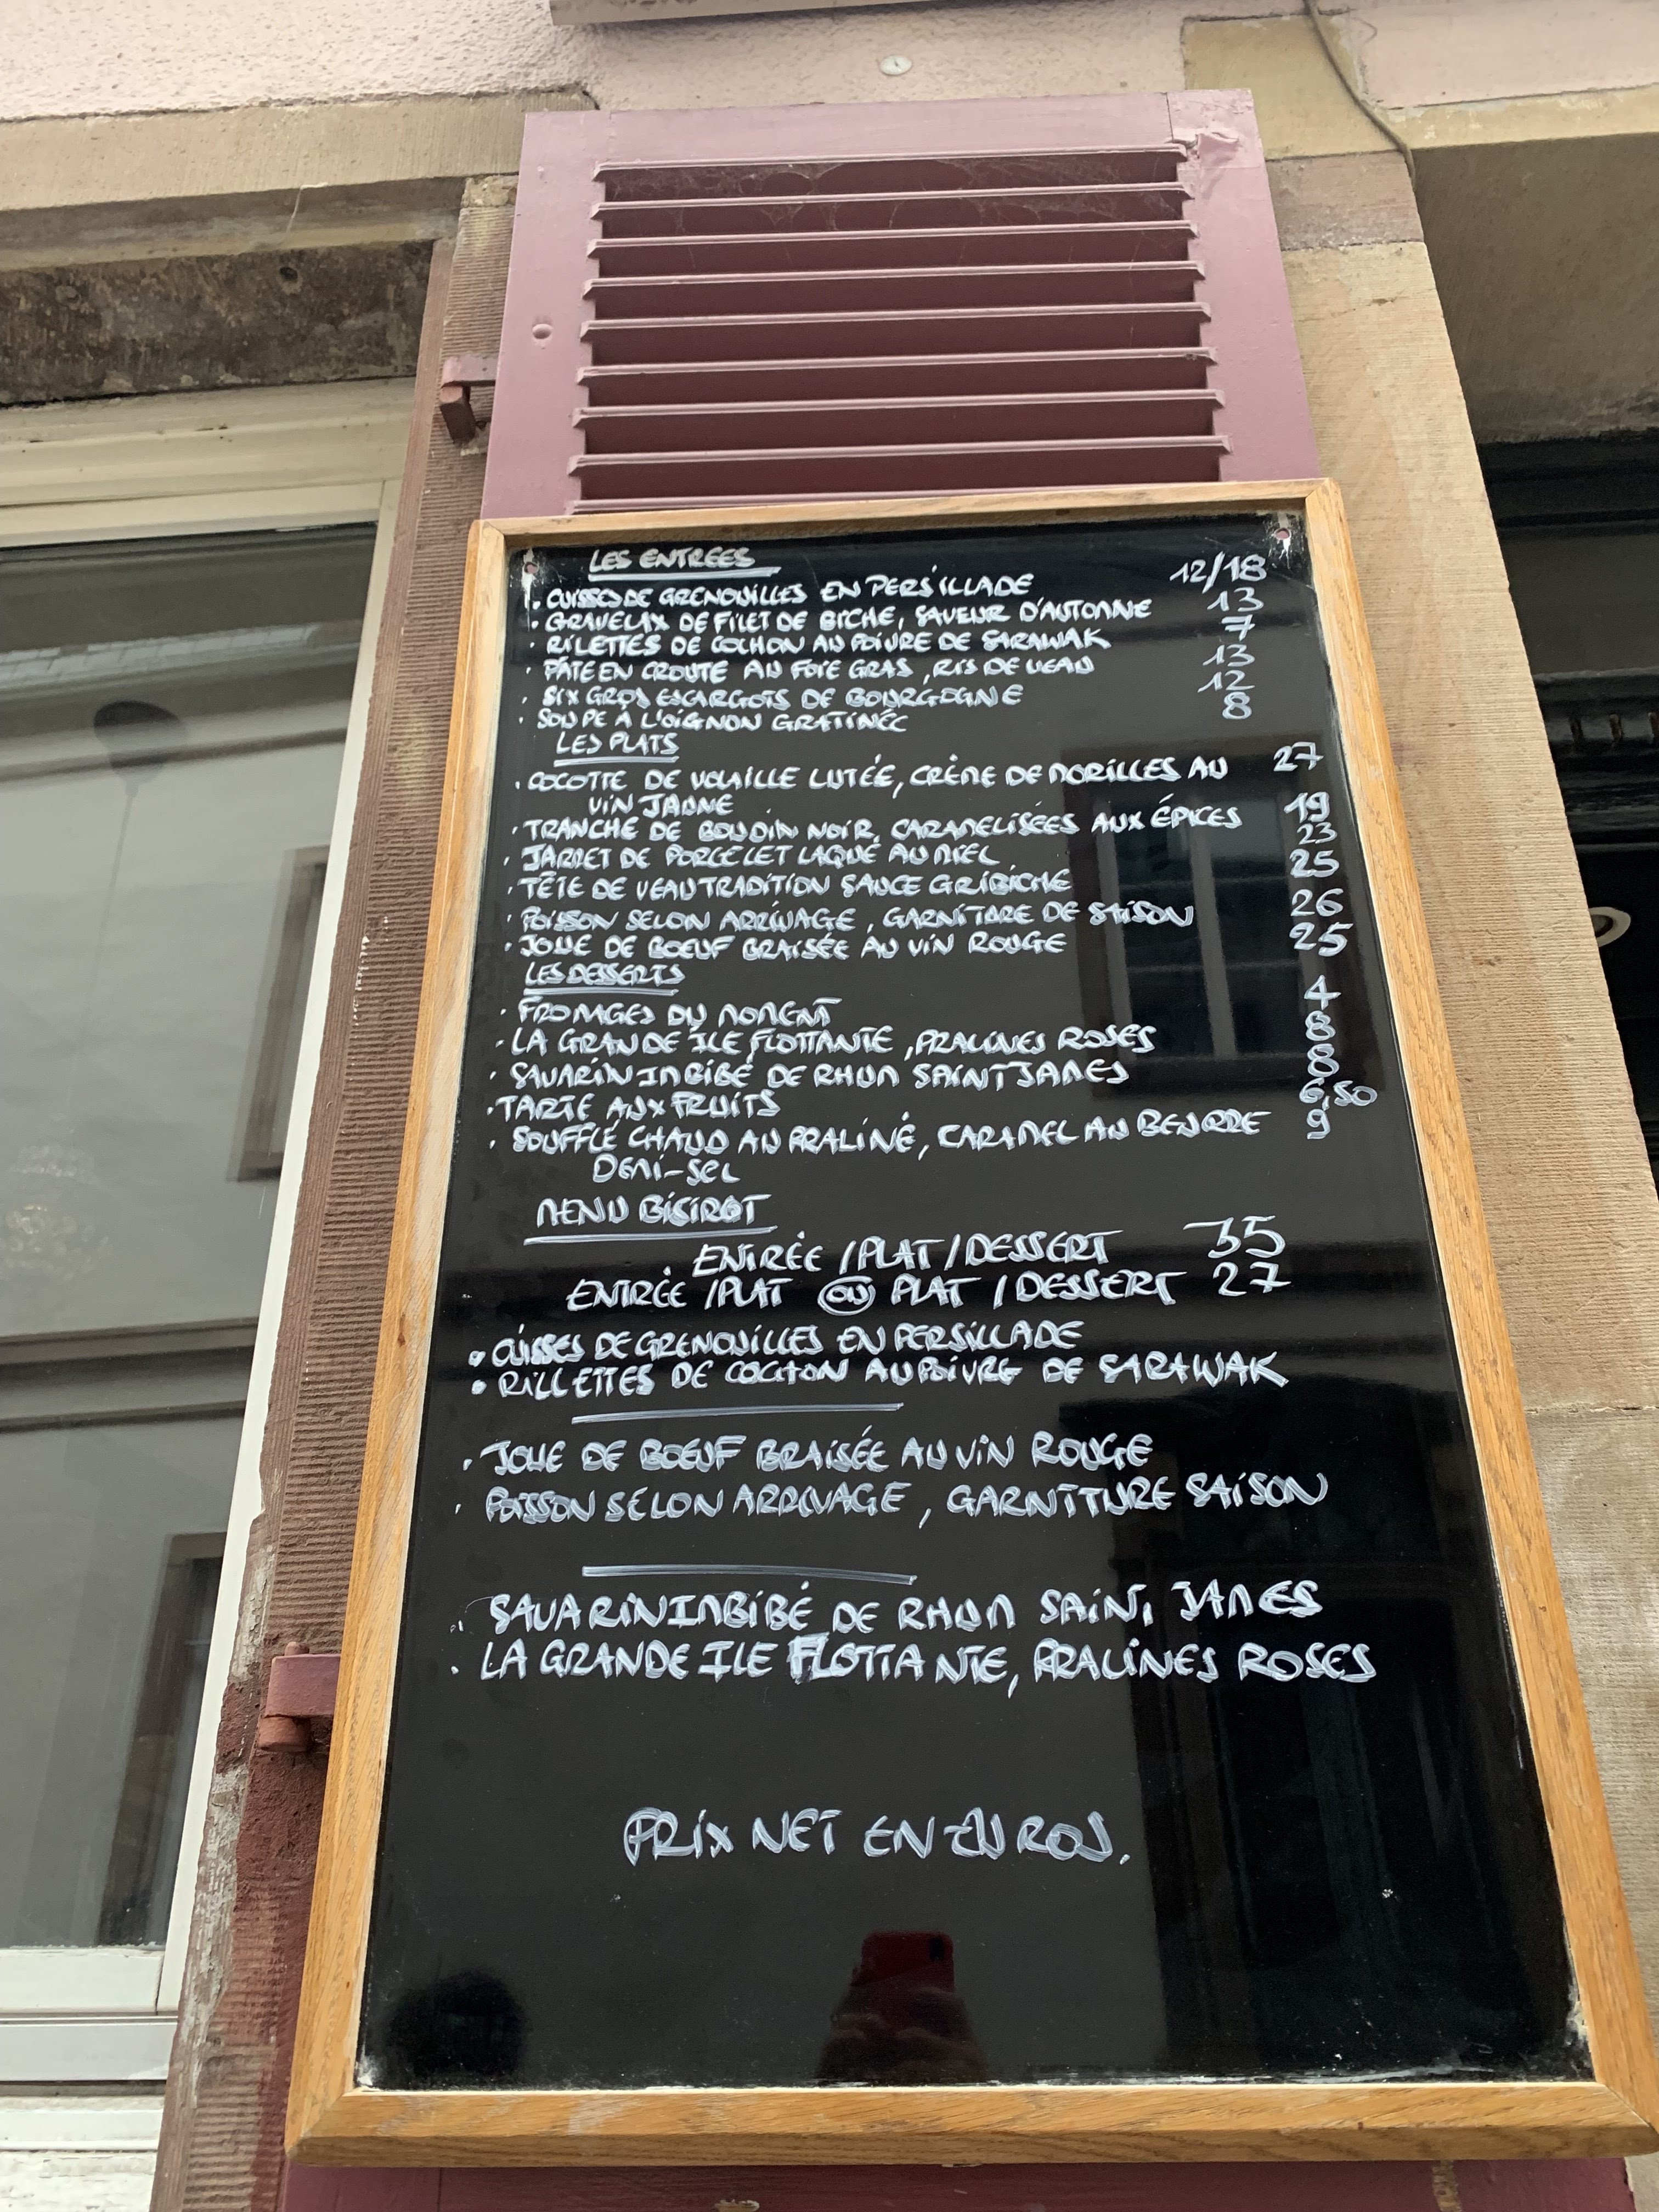 LES ENTREES
• CUISSES DE GRENOUILLES EN PERSILLADE 12/18
• GRAVELAX DE FILET DE BICHE, SAVEUR D'AUTOMNE 13
• RILETTES DE COCHON AU POIVRE DE SARAWAK 7
• PÂTE EN CROUTE AU FOIE GRAS, RIS DE VEAU 13
• SIX GROS ESCARGOTS DE BOURGOGNE 12
• SOUPE A L'OIGNON GRATINÉE 8
LES PLATS
• COCOTTE DE VOLAILLE LUTÉE, CRÈME DE MORILLES AU 27
VIN JAUNE
• TRANCHE DE BOUDIN NOIR, CARAMELISÉES AUX ÉPICES 19
• JARRET DE PORCELET LAQUÉ AU MIEL 23
• TÊTE DE VEAU TRADITION SAUCE GRIBICHE 25
• POISSON SELON ARRIVAGE, GARNITURE DE SAISON 26
• JOUE DE BŒUF BRAISÉE AU VIN ROUGE 25
LES DESSERTS
• FROMAGES DU MOMENT 4
• LA GRANDE ILE FLOTTANTE, PRALINES ROSES 8
• SAVARIN IMBIBÉ DE RHUM SAINT JAMES 8
• TARTE AUX FRUITS 6,50
• SOUFFLÉ CHAUD AU PRALINÉ, CARAMEL AU BEURRE 9
DEMI-SEL
MENU BISTROT
ENTRÉE / PLAT / DESSERT 35
ENTRÉE / PLAT OU PLAT / DESSERT 27
• CUISSES DE GRENOUILLES EN PERSILLADE
• RILLETTES DE COCHON AU POIVRE DE SARAWAK
• JOUE DE BOEUF BRAISÉE AU VIN ROUGE
• POISSON SELON ARRIVAGE, GARNITURE SAISON
• SAVARIN IMBIBÉ DE RHUM SAINT JAMES
• LA GRANDE ILE FLOTTANTE, PRALINES ROSES
PRIX NET EN EUROS.